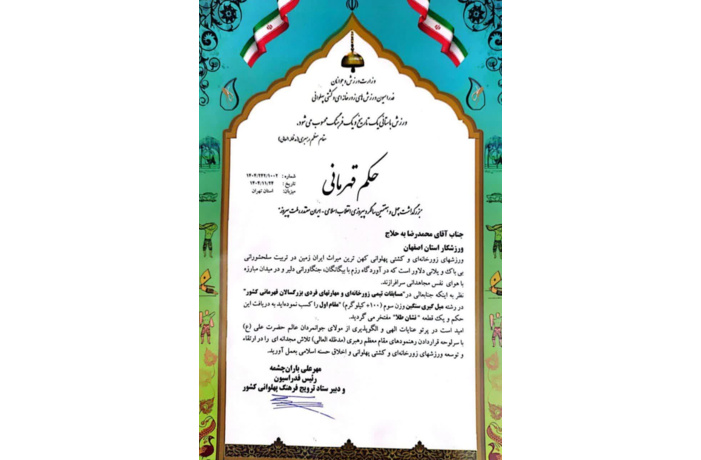 وزارت ورزش و جوانان
فدراسیون ورزش های زورخانه ای و کشتی پهلوانی
ورزش باستانی یک تاریخ و یک فرهنگ محسوب می شود.
مقام معظم رهبری (مدظله العالی)
شماره : ۱۴۰۴/۲۴۲/۱۰۰۲
تاریخ : ۱۴۰۴/۱۱/۲۴
میزبان: استان تهران
حکم قهرمانی
بزرگداشت چهل و هفتمین سالگرد پیروزی انقلاب اسلامی - ایران مقتدر، ملت پیروز
جناب آقای محمدرضا به حلاج
ورزشکار استان اصفهان
ورزشهای زورخانه‌ای و کشتی پهلوانی کهن ترین میراث ایران زمین در تربیت سلحشورانی
بی باک و یلانی دلاور است که در آوردگاه رزم با بیگانگان، جنگاورانی دلیر و در میدان مبارزه
با هوای نفس مجاهدانی سرافرازند.
نظر به اینکه جنابعالی در "مسابقات تیمی زورخانه‌ای و مهارتهای فردی بزرگسالان قهرمانی کشور"
در رشته میل گیری سنگین وزن سوم (۱۰۰+ کیلوگرم) "مقام اول" را کسب نموده‌اید به دریافت این
حکم و یک قطعه " نشان طلا" مفتخر می گردید.
امید است در پرتو عنایات الهی و الگوپذیری از مولای جوانمردان عالم حضرت علی (ع)
با سرلوحه قراردادن رهنمودهای مقام معظم رهبری (مدظله العالی) تلاش مجدانه ای را در ارتقاء
و توسعه ورزشهای زورخانه‌ای و کشتی پهلوانی و اخلاق حسنه اسلامی بعمل آورید.
مهرعلی باران‌چشمه
رئیس فدراسیون
و دبیر ستاد ترویج فرهنگ پهلوانی کشور